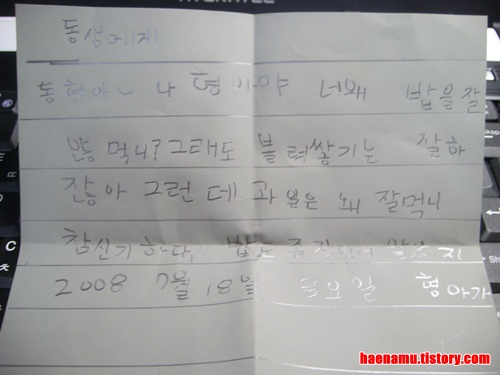 동생에게
동현아~ 나 형아야 너왜 밥을잘
않 먹니? 그래도 블럭쌓기는 잘하
잔아 그런데 과일은 왜 잘먹니
참신기하다. 밥도 알았지
2008 7월 18일 금요일 형아가
haenamu.tistory.com